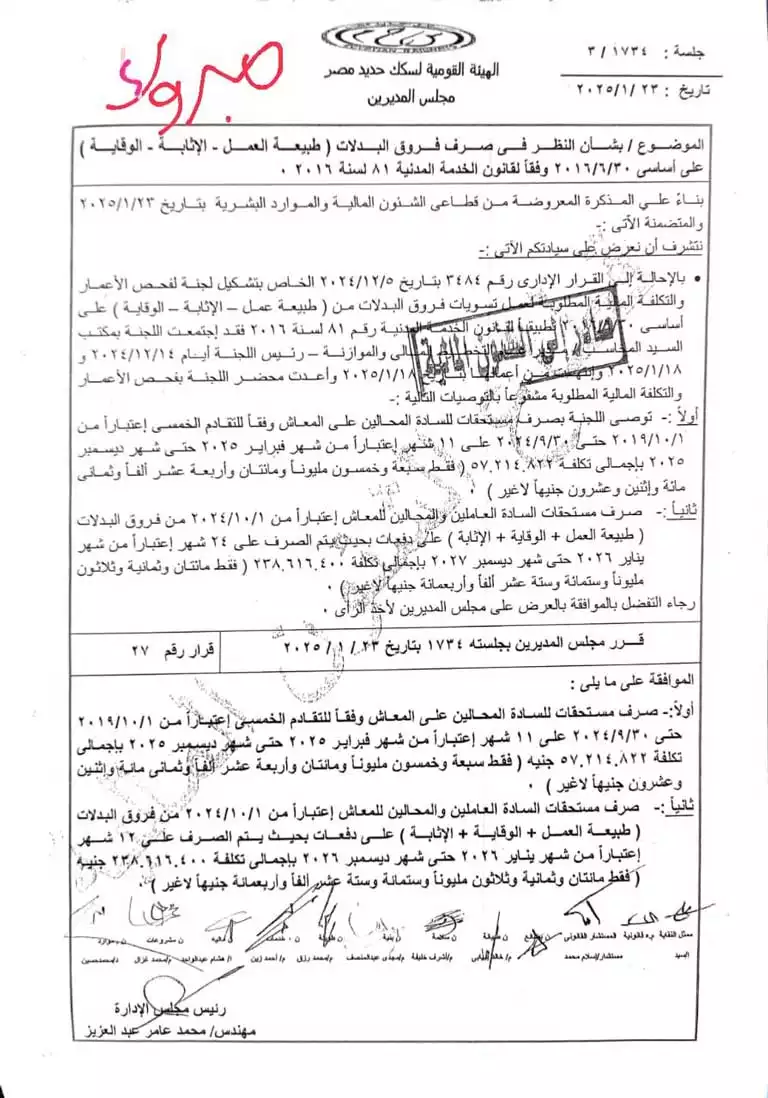 مبروك
جلسة : ١٧٣٤ / ٣
تاريخ : ٢٠٢٥/١/٢٣
الهيئة القومية لسكك حديد مصر
مجلس المديرين
الموضوع / بشأن النظر فى صرف فروق البدلات ( طبيعة العمل - الإثابة - الوقاية )
على أساسى ٢٠١٦/٦/٣٠ وفقاً لقانون الخدمة المدنية ٨١ لسنة ٢٠١٦ .
بناءً علي المذكرة المعروضة من قطاعى الشئون المالية والموارد البشرية بتاريخ ٢٠٢٥/١/٢٣
والمتضمنة الأتى :-
نتشرف أن نعرض على سيادتكم الأتى :-
• بالإحالة إلى القرار الإدارى رقم ٣٤٨٤ بتاريخ ٢٠٢٤/١٢/٥ الخاص بتشكيل لجنة لفحص الأعمار
والتكلفة المالية المطلوبة لعمل تسويات فروق البدلات من ( طبيعة عمل – الإثابة – الوقاية ) على
أساسى تطبيقاً لقانون الخدمة المدنية رقم ٨١ لسنة ٢٠١٦ فقد إجتمعت اللجنة بمكتب
السيد المحاسب / المالى والموازنة – رئيس اللجنة أيام ٢٠٢٤/١٢/١٤ و
٢٠٢٥/١/١٨ وإنتهت من أعمالها بتاريخ ٢٠٢٥/١/١٨ وأعدت محضر اللجنة بفحص الأعمار
والتكلفة المالية المطلوبة مشفوعاً بالتوصيات التالية :-
أولاً :- توصى اللجنة بصرف مستحقات للسادة المحالين على المعاش وفقاً للتقادم الخمسى إعتباراً من
٢٠١٩/١٠/١ حتى ٢٠٢٤/٩/٣٠ على ١١ شهر إعتباراً من شهر فبراير ٢٠٢٥ حتى شهر ديسمبر
٢٠٢٥ بإجمالى تكلفة ٥٧.٢١٤.٨٢٢ ( فقط سبعة وخمسون مليوناً ومائتان وأربعة عشر ألفاً وثمانى
مائة وإثنين وعشرون جنيهاً لاغير ) .
ثانياً :- صرف مستحقات السادة العاملين والمحالين للمعاش إعتباراً من ٢٠٢٤/١٠/١ من فروق البدلات
( طبيعة العمل + الوقاية + الإثابة ) على دفعات بحيث يتم الصرف على ٢٤ شهر إعتباراً من شهر
يناير ٢٠٢٦ حتى شهر ديسمبر ٢٠٢٧ بإجمالى تكلفة ٢٣٨.٦١٦.٤٠٠ ( فقط مائتان وثمانية وثلاثون
مليوناً وستمائة وستة عشر ألفاً وأربعمائة جنيهاً لاغير ) .
رجاء التفضل بالموافقة بالعرض على مجلس المديرين لأخذ الرأى .
قرر مجلس المديرين بجلسته ١٧٣٤ بتاريخ ٢٣ / ١ / ٢٠٢٥
قرار رقم ٢٧
الموافقة على ما يلى :
أولاً:- صرف مستحقات للسادة المحالين على المعاش وفقاً للتقادم الخمسى إعتباراً من ٢٠١٩/١٠/١
حتى ٢٠٢٤/٩/٣٠ على ١١ شهر إعتباراً من شهر فبراير ٢٠٢٥ حتى شهر ديسمبر ٢٠٢٥ بإجمالى
تكلفة ٥٧.٢١٤.٨٢٢ جنيه ( فقط سبعة وخمسون مليوناً ومائتان وأربعة عشر ألفاً وثمانى مائة وإثنين
وعشرون جنيهاً لاغير ) .
ثانياً :- صرف مستحقات السادة العاملين والمحالين للمعاش إعتباراً من ٢٠٢٤/١٠/١ من فروق البدلات
( طبيعة العمل + الوقاية + الإثابة ) على دفعات بحيث يتم الصرف على ١٢ شهر
إعتباراً من شهر يناير ٢٠٢٦ حتى شهر ديسمبر ٢٠٢٦ بإجمالى تكلفة ٢٣٨.٦١٦.٤٠٠ جنيه
( فقط مائتان وثمانية وثلاثون مليوناً وستمائة وستة عشر ألفاً وأربعمائة جنيهاً لاغير ) .
ممثل النقابة م.ه قانونية المستشار القانونى ن سلامة ن بنية ن مالية ن مشروعات ن بموارد
السيد مستشار/إسلام محمد م/أشرف خليفة م/مجدى عبدالمنصف م/محمد رزق م/أحمد زين أ/ هشام عبدالواحد م/محمد غزال د/محمدحسين
رئيس مجلس الإدارة
مهندس/ محمد عامر عبد العزيز